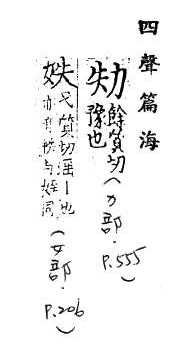 四聲篇海
劮 餘質切
豫也 (力部. P.555)
妷 弋質切滛丨也
亦音帙与姪同 (女部. P.206)